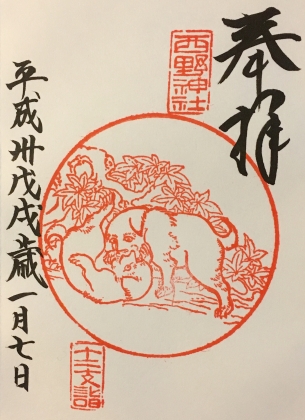 奉拝
西野神社
十二支詣
平成卅戊戌歳一月七日